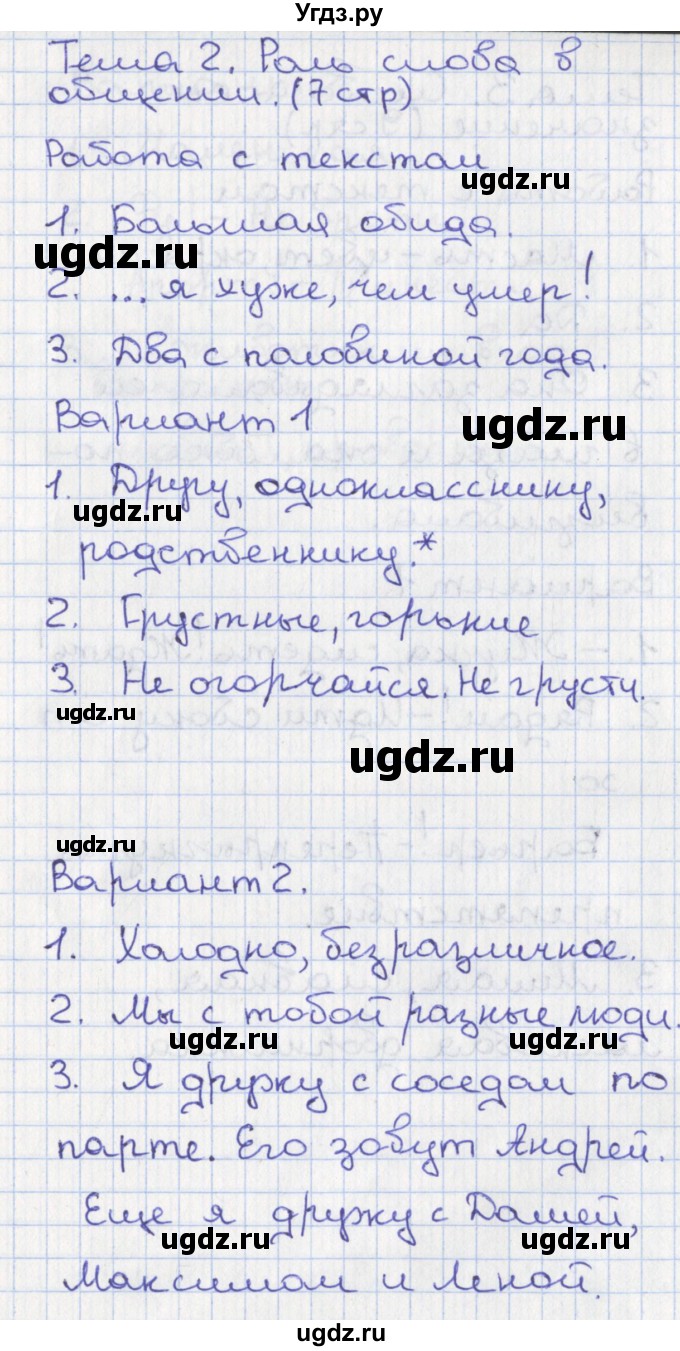 Угдз.ру
Тема 2. Роль слова в
общении. (7 стр)
Работа с текстом
ugdz.ru
1. Большая обида.
ugdz.ru
2. ... я хуже, чем умер!
3. Два с половиной года.
Вариант 1
ugdz.ru
1. Другу, однокласснику,
ugdz.ru
родственнику.*
2. Грустные, горькие
3. Не огорчайся. Не грусти.
ugdz.ru
ugdz.ru
ugdz.ru
Вариант 2.
1. Холодно, безразличное.
2. Мы с тобой разные люди.
ugdz.ru ugdz.ru
3. Я дружу с соседом по
парте. Его зовут Андрей.
Еще я дружу с Дашей,
ugdz.ru ugdz.ru
Максимом и Леной.
ugdz.ru